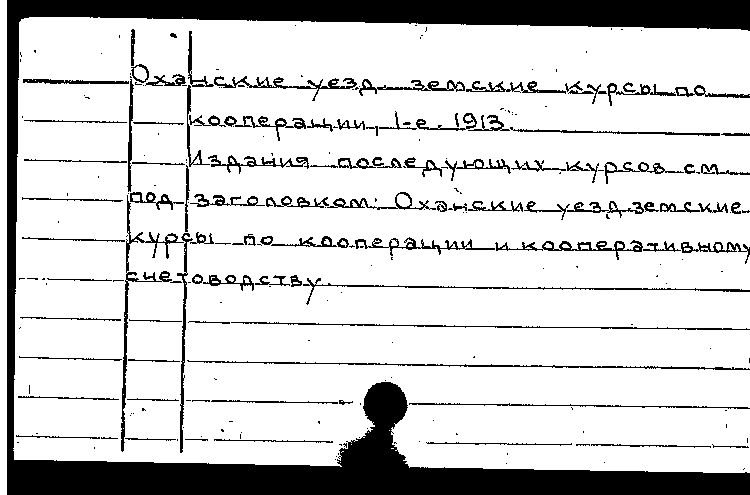 Оханские уезд. земские курсы по
кооперации, 1-е. 1913.
Издания последующих курсов см.
под заголовком: Оханские уезд. земские
курсы по кооперации и кооперативному
счетоводству.